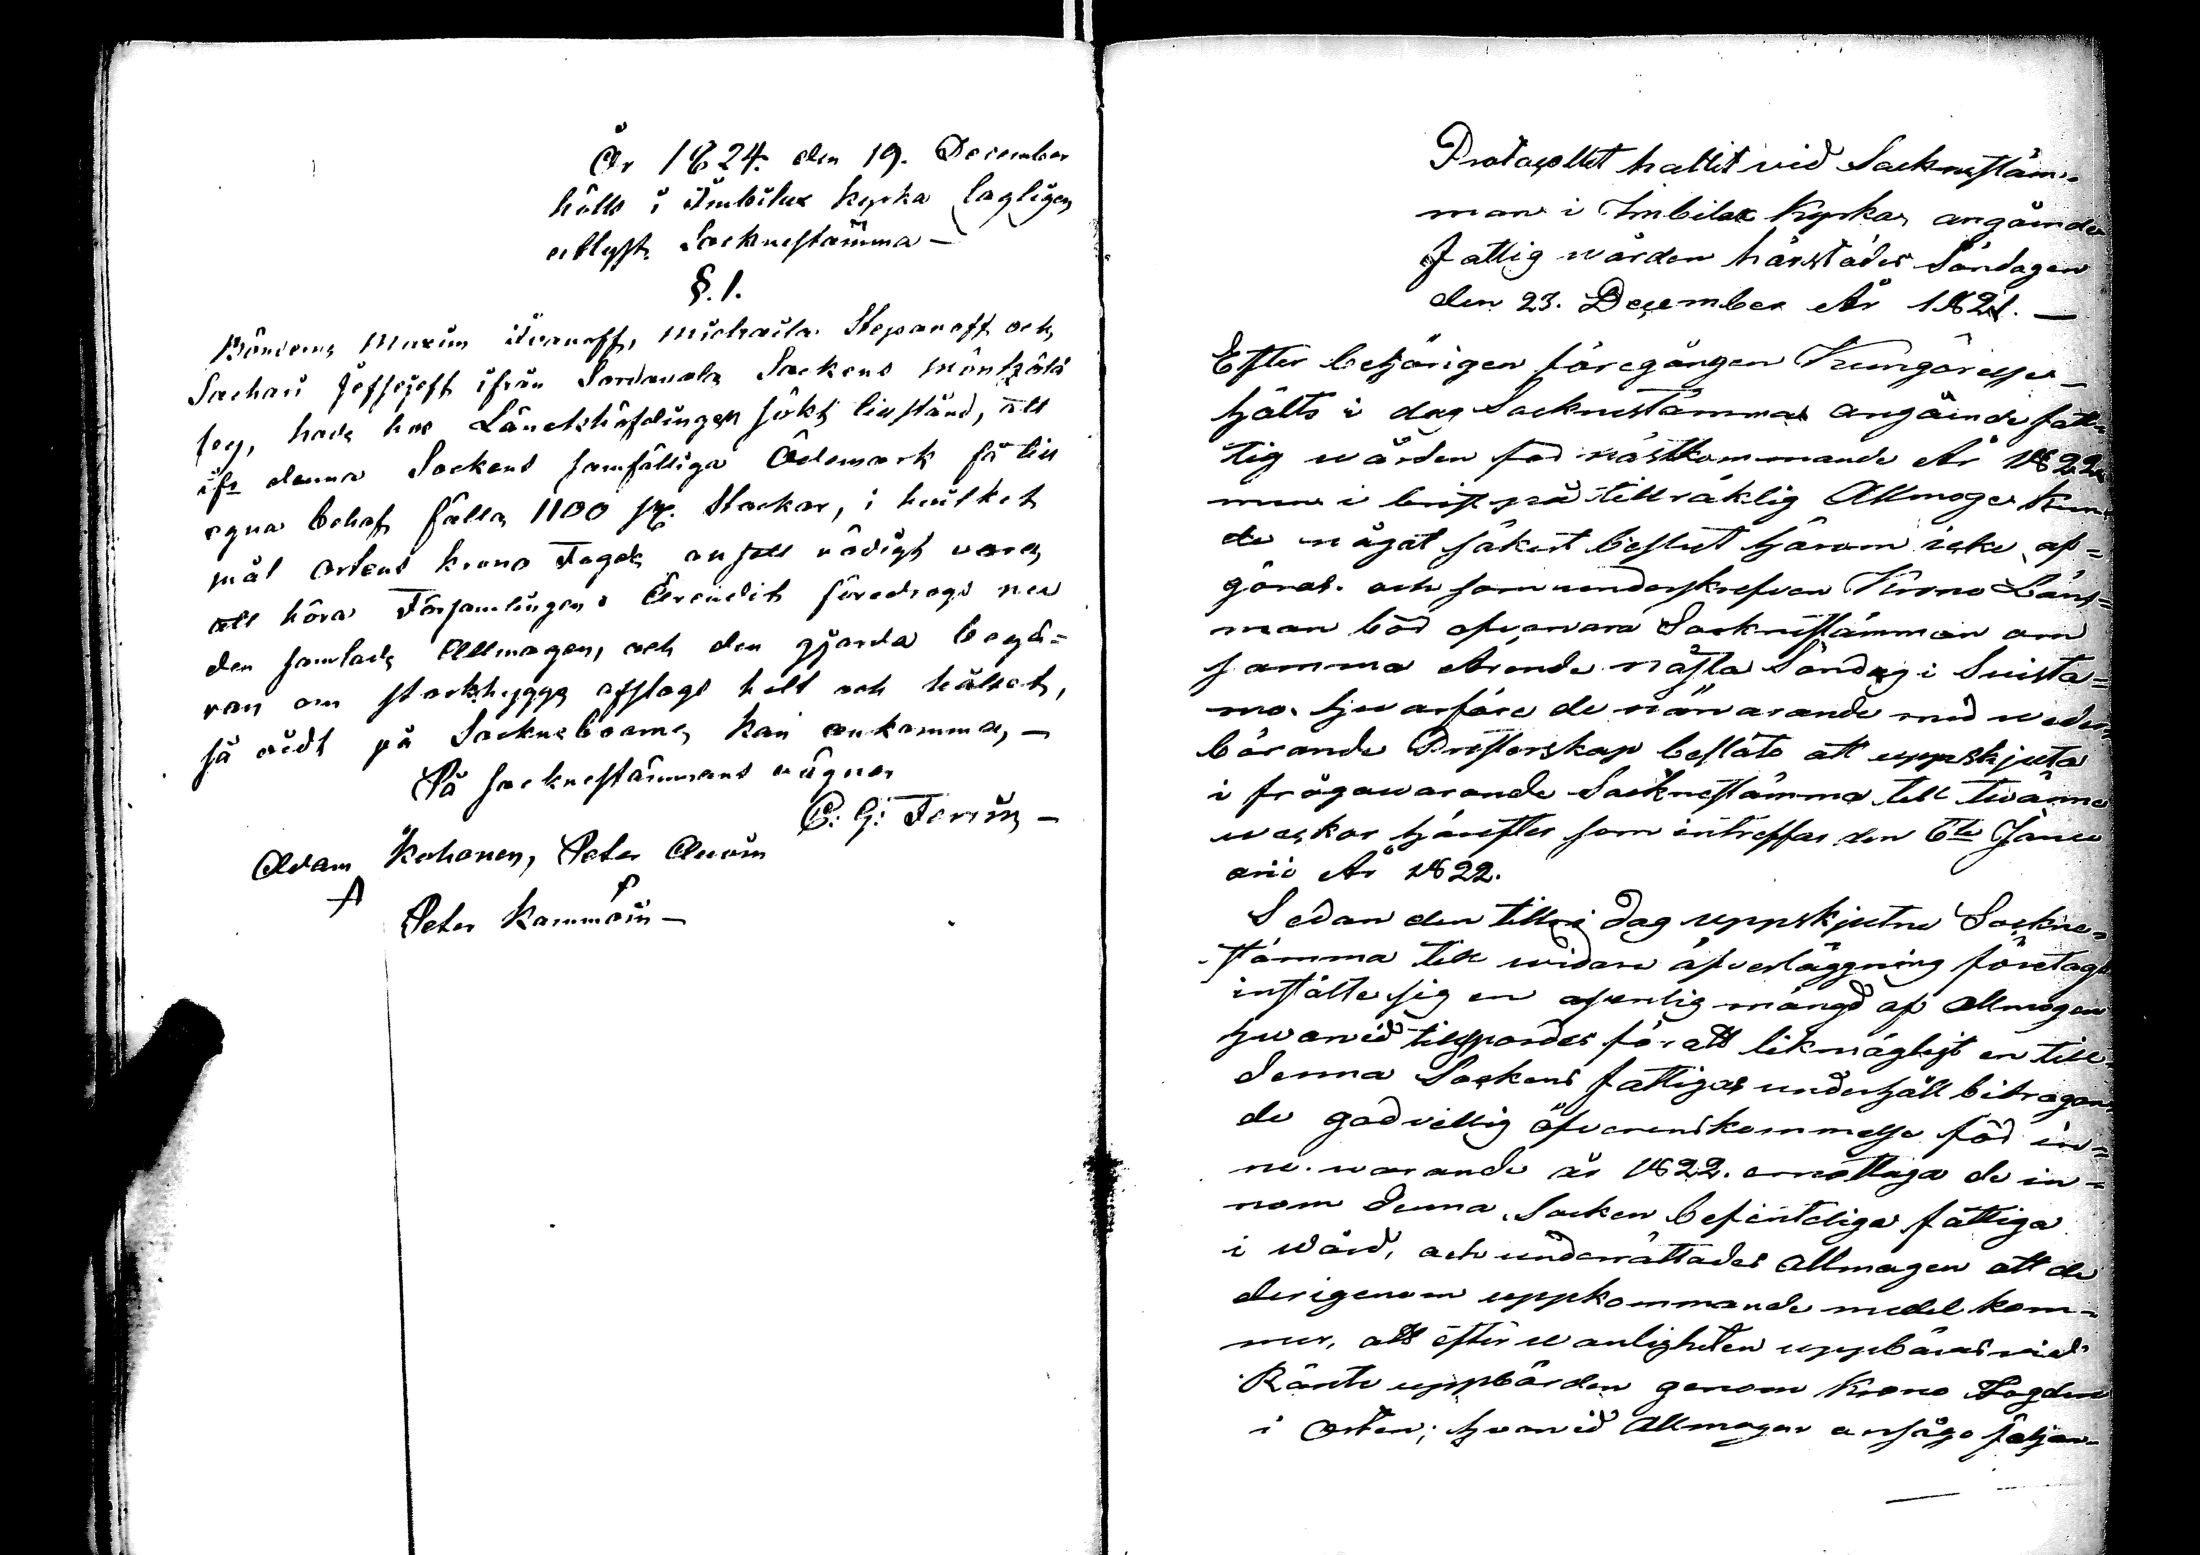 År 1824. den 19. December
hölls i Imbilax kyrka lagligen
utlyst Socknestämma –
§. 1.
Bönderne Maxim Ivanoff, Michaila Stepanoff och
Sachari Jeffejeff ifrån Sordavala Sockens
by, hade hos Länetshöfdingen sökt tillstånd, att
ifr denna Sockens samfälliga Ödemark få till
egna behof fälla 1100 st. Stockar, i hvilket
mål ortens krono Fogde ansett nödigt vara
att höra Församlingen. Ärendit föredrogs nu
den samlade Allmogen, och den gjorda begä=
ran om stockhygge afslogs helt och hållet,
så vidt på Sockneboerne kan ankomma, –
På Socknestämmans vägnar
C. G. –
Adam Kohonen, Peter
Peter –
Protocollet hållit vid Socknestäm=
man i Imbilax Kyrka, angående
Fattig vården härstädes Söndagen
den 23. December År 1821. –
Efter behörigen föregången Kungörelse
hölts i dag Socknestämma angående fatt=
tig vården för nästkommande År 1822
men i brist på tillräklig Allmoge kun
de något säkert beslut härom icke af=
göras. och som underskrefven Krono Läns=
man bör öfvervara Socknestämman om
samma ärende nästa Söndag i Suista=
mo. hvarföre de närvarande med veder
börande Presterskap beslöto att uppskjuta
i frågavarande Socknestämma till tvänne
veckor härefter som intreffar den 6te Janu
arii År 1822.
Sedan den till i dag uppskjutne Sockne=
stämma till vidare öfverläggning företags
instälte sig en ansenlig mängd af Allmogen
hvarvid tillspordes för att likmägligt en till
denna Sockens fattigas underhåll bidragan
de godvillig öfverenskommelse för in=
ne varande år 1822. emottaga de in=
nom denna Socken befinteliga fattiga
i vård, och underrättades Allmogen att de
derigenom uppkommande medel kom=
mer, att efter vanligheten uppbäras vid
Ränte uppbörden genom Krono Fogden
i Orten; hvarvid Allmogen